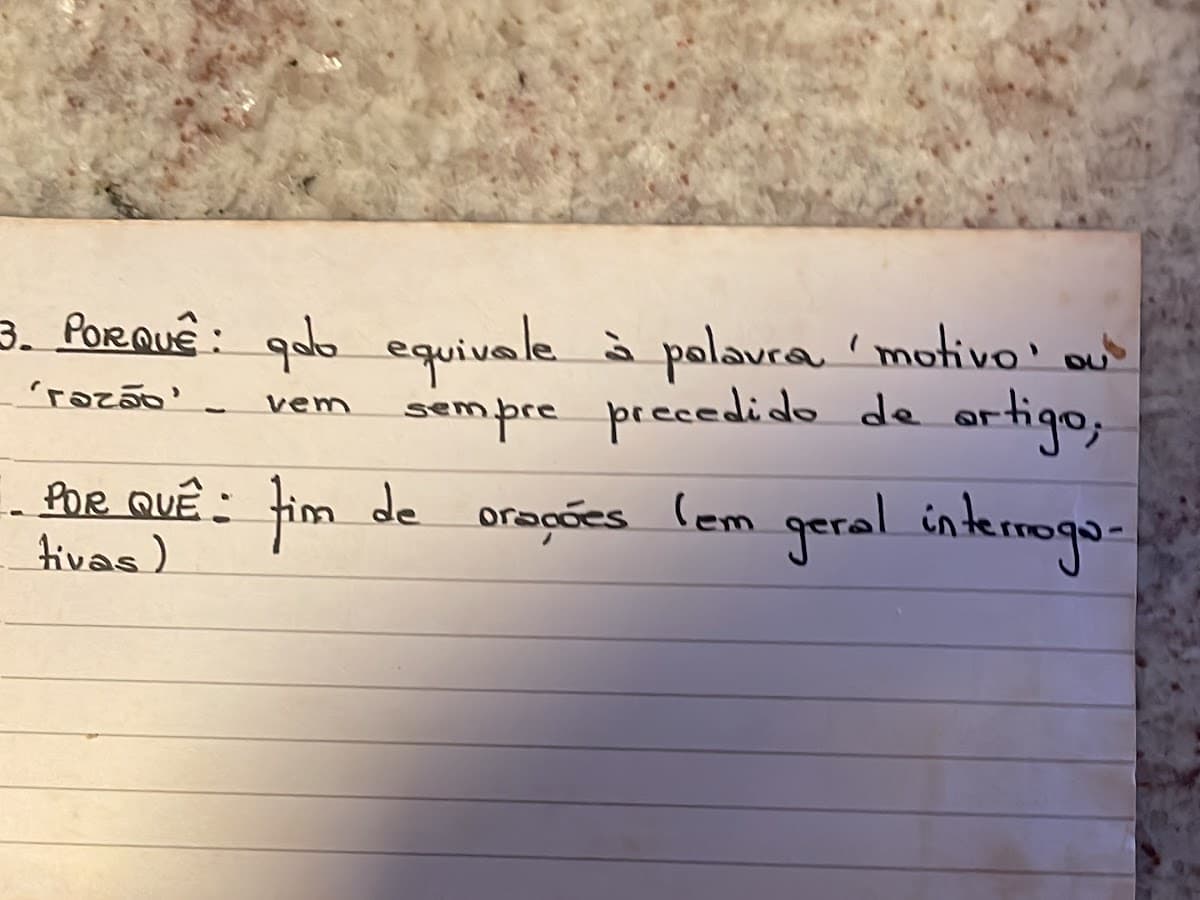 3. PORQUÊ: qdo equivale à palavra 'motivo' ou
'razão' - vem sempre precedido de artigo;
- POR QUÊ: fim de orações (em geral interroga-
tivas)